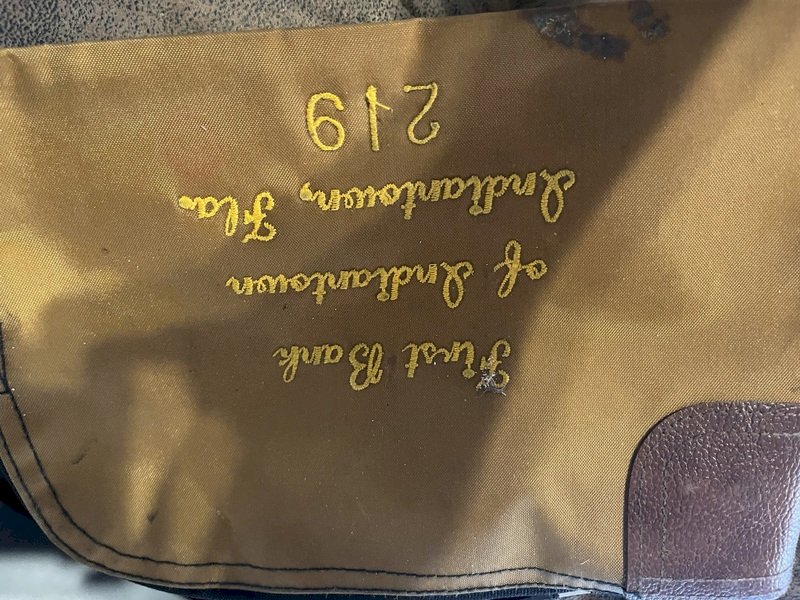 First Bank
of Indiantown
Indiantown, Fla.
219